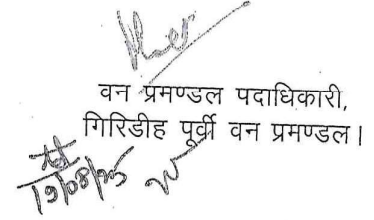 वन प्रमण्डल पदाधिकारी,
गिरिडीह पूर्वी वन प्रमण्डल।
19/08/25